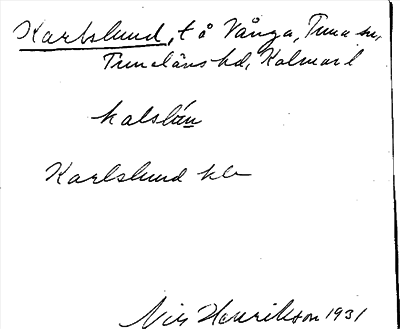 Karlslund, t å Vånga, Tuna sn,
Tunaläns hd, Kalmar l
kalslún
Karlslund kle
Nils Henrikson 1931